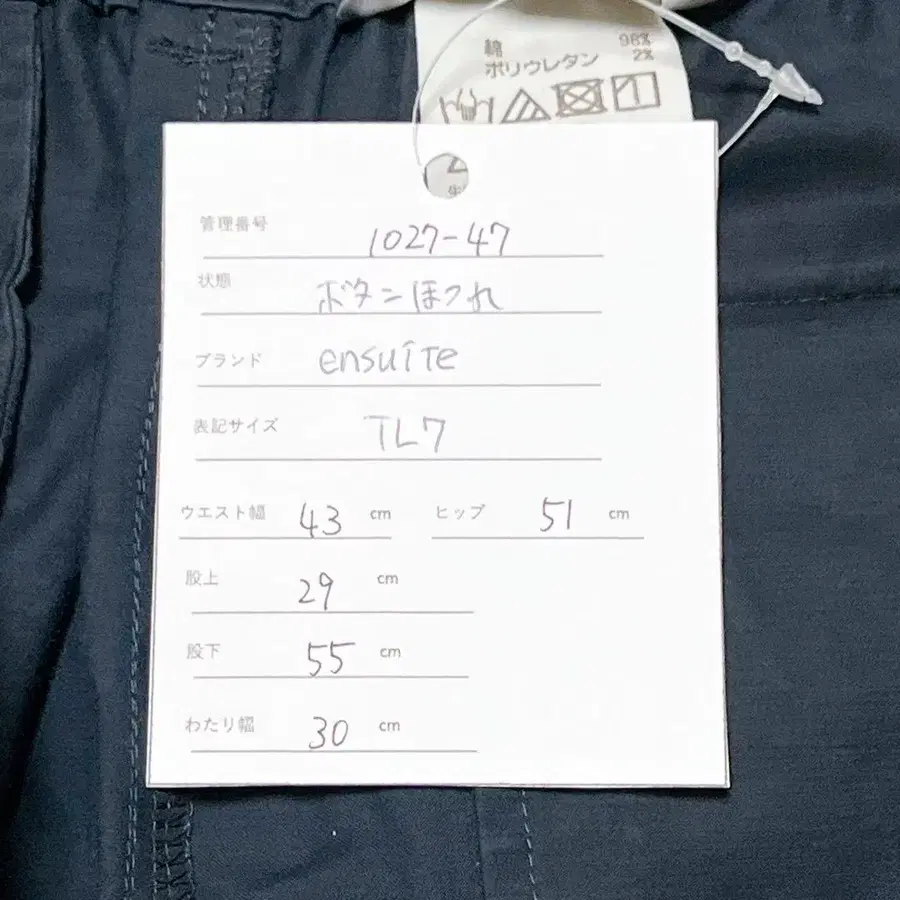 綿 98%
ポリウレタン 2%
管理番号 1027-47
状態 ボタンほつれ
ブランド ensuite
表記サイズ TL7
ウエスト幅 43 cm ヒップ 51 cm
股上 29 cm
股下 55 cm
わたり幅 30 cm